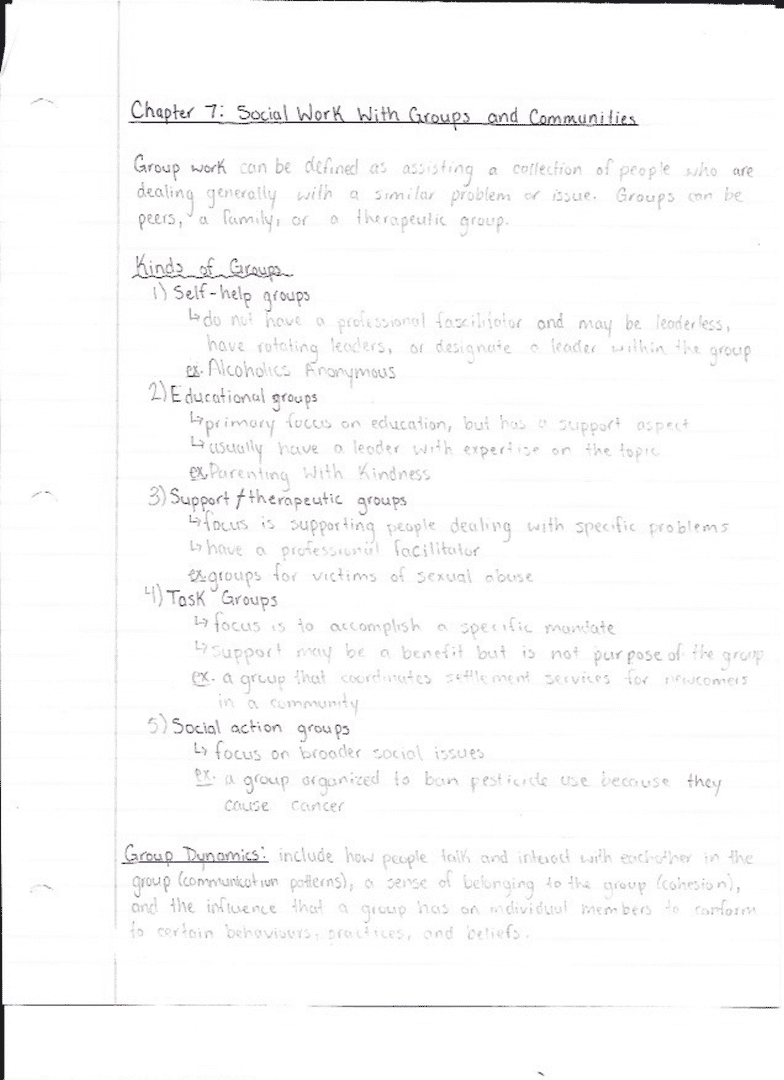 Chapter 7: Social Work With Groups and Communities
Group work can be defined as assisting a collection of people who are
dealing generally with a similar problem or issue. Groups can be
peers, a family, or a therapeutic group.
Kinds of Groups
1) Self-help groups
↳do not have a professional fascilitator and may be leaderless,
have rotating leaders, or designate a leader within the group
ex. Alcoholics Anonymous
2) Educational groups
↳primary focus on education, but has a support aspect
↳usually have a leader with expertise on the topic
ex. Parenting With Kindness
3) Support/therapeutic groups
↳focus is supporting people dealing with specific problems
↳have a professional facilitator
ex. groups for victims of sexual abuse
4) Task Groups
↳focus is to accomplish a specific mandate
↳support may be a benefit but is not purpose of the group
ex. a group that coordinates settlement services for newcomers
in a community
5) Social action groups
↳ focus on broader social issues
ex. a group organized to ban pesticide use because they
cause cancer
Group Dynamics: include how people talk and interact with eachother in the
group (communication patterns), a sense of belonging to the group (cohesion),
and the influence that a group has on individual members to conform
to certain behaviours, practices, and beliefs.